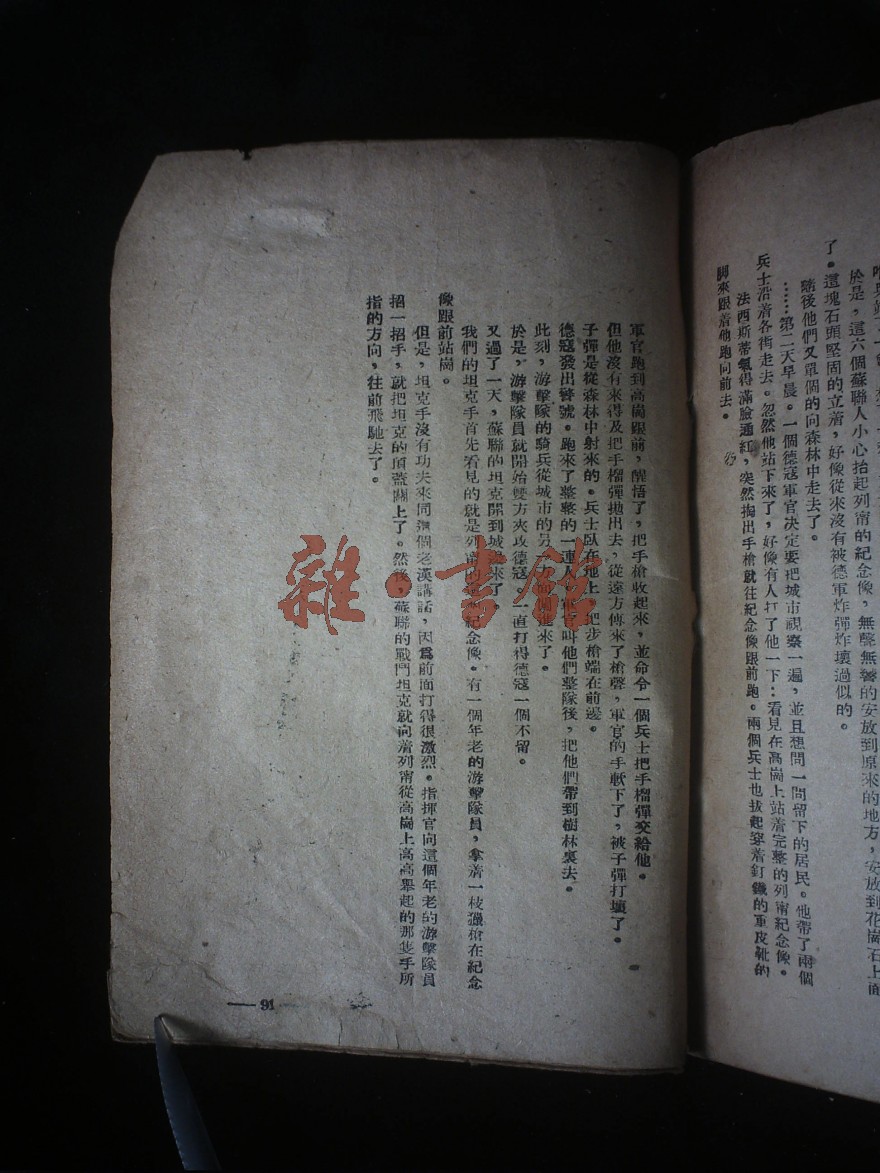 於是，這六個蘇聯人小心抬起列甯的紀念像，無聲無響的安放到原來的地方，安放到花崗石上面
了。這塊石頭堅固的立着，好像從來沒有被德軍炸彈炸壞過似的。
隨後他們又單個的向森林中走去了。
……第二天早晨。一個德寇軍官決定要把城市視察一遍，並且想問一問留下的居民。他帶了兩個
兵士沿着各街走去。忽然他站下來了，好像有人打了他一下：看見在高崗上站着完整的列甯紀念像。
法西斯蒂氣得滿臉通紅，突然掏出手槍就往紀念像跟前跑。兩個兵士也拔起穿着釘鐵的軍皮靴的
脚來跟着他跑向前去。
軍官跑到高崗跟前，醒悟了，把手槍收起來，並命令一個兵士把手榴彈交給他。
但他沒有來得及把手榴彈拋出去，從遠方傳來了槍聲，軍官的手軟下了，被子彈打壞了。
子彈是從森林中射來的。兵士臥在地上，把步槍端在前邊。
德寇發出警號。跑來了整整的一連人。軍官叫他們整隊後，把他們帶到樹林裏去。
此刻，游擊隊的騎兵從城市的另一方面開進來了。
於是，游擊隊員就開始雙方夾攻德寇，一直打得德寇一個不留。
又過了一天，蘇聯的坦克開到城邊來了。
我們的坦克手首先看見的就是列甯的紀念像。有一個年老的游擊隊員，拿着一枝獵槍在紀念
像跟前站崗。
但是，坦克手沒有功夫來同這個老漢講話，因爲前面打得很激烈。指揮官向這個年老的游擊隊員
招一招手，就把坦克的頂蓋關上了。然後，蘇聯的戰鬥坦克就向着列甯從高崗上高高舉起的那隻手所
指的方向，往前飛馳去了。
— 91 —
雜·書館